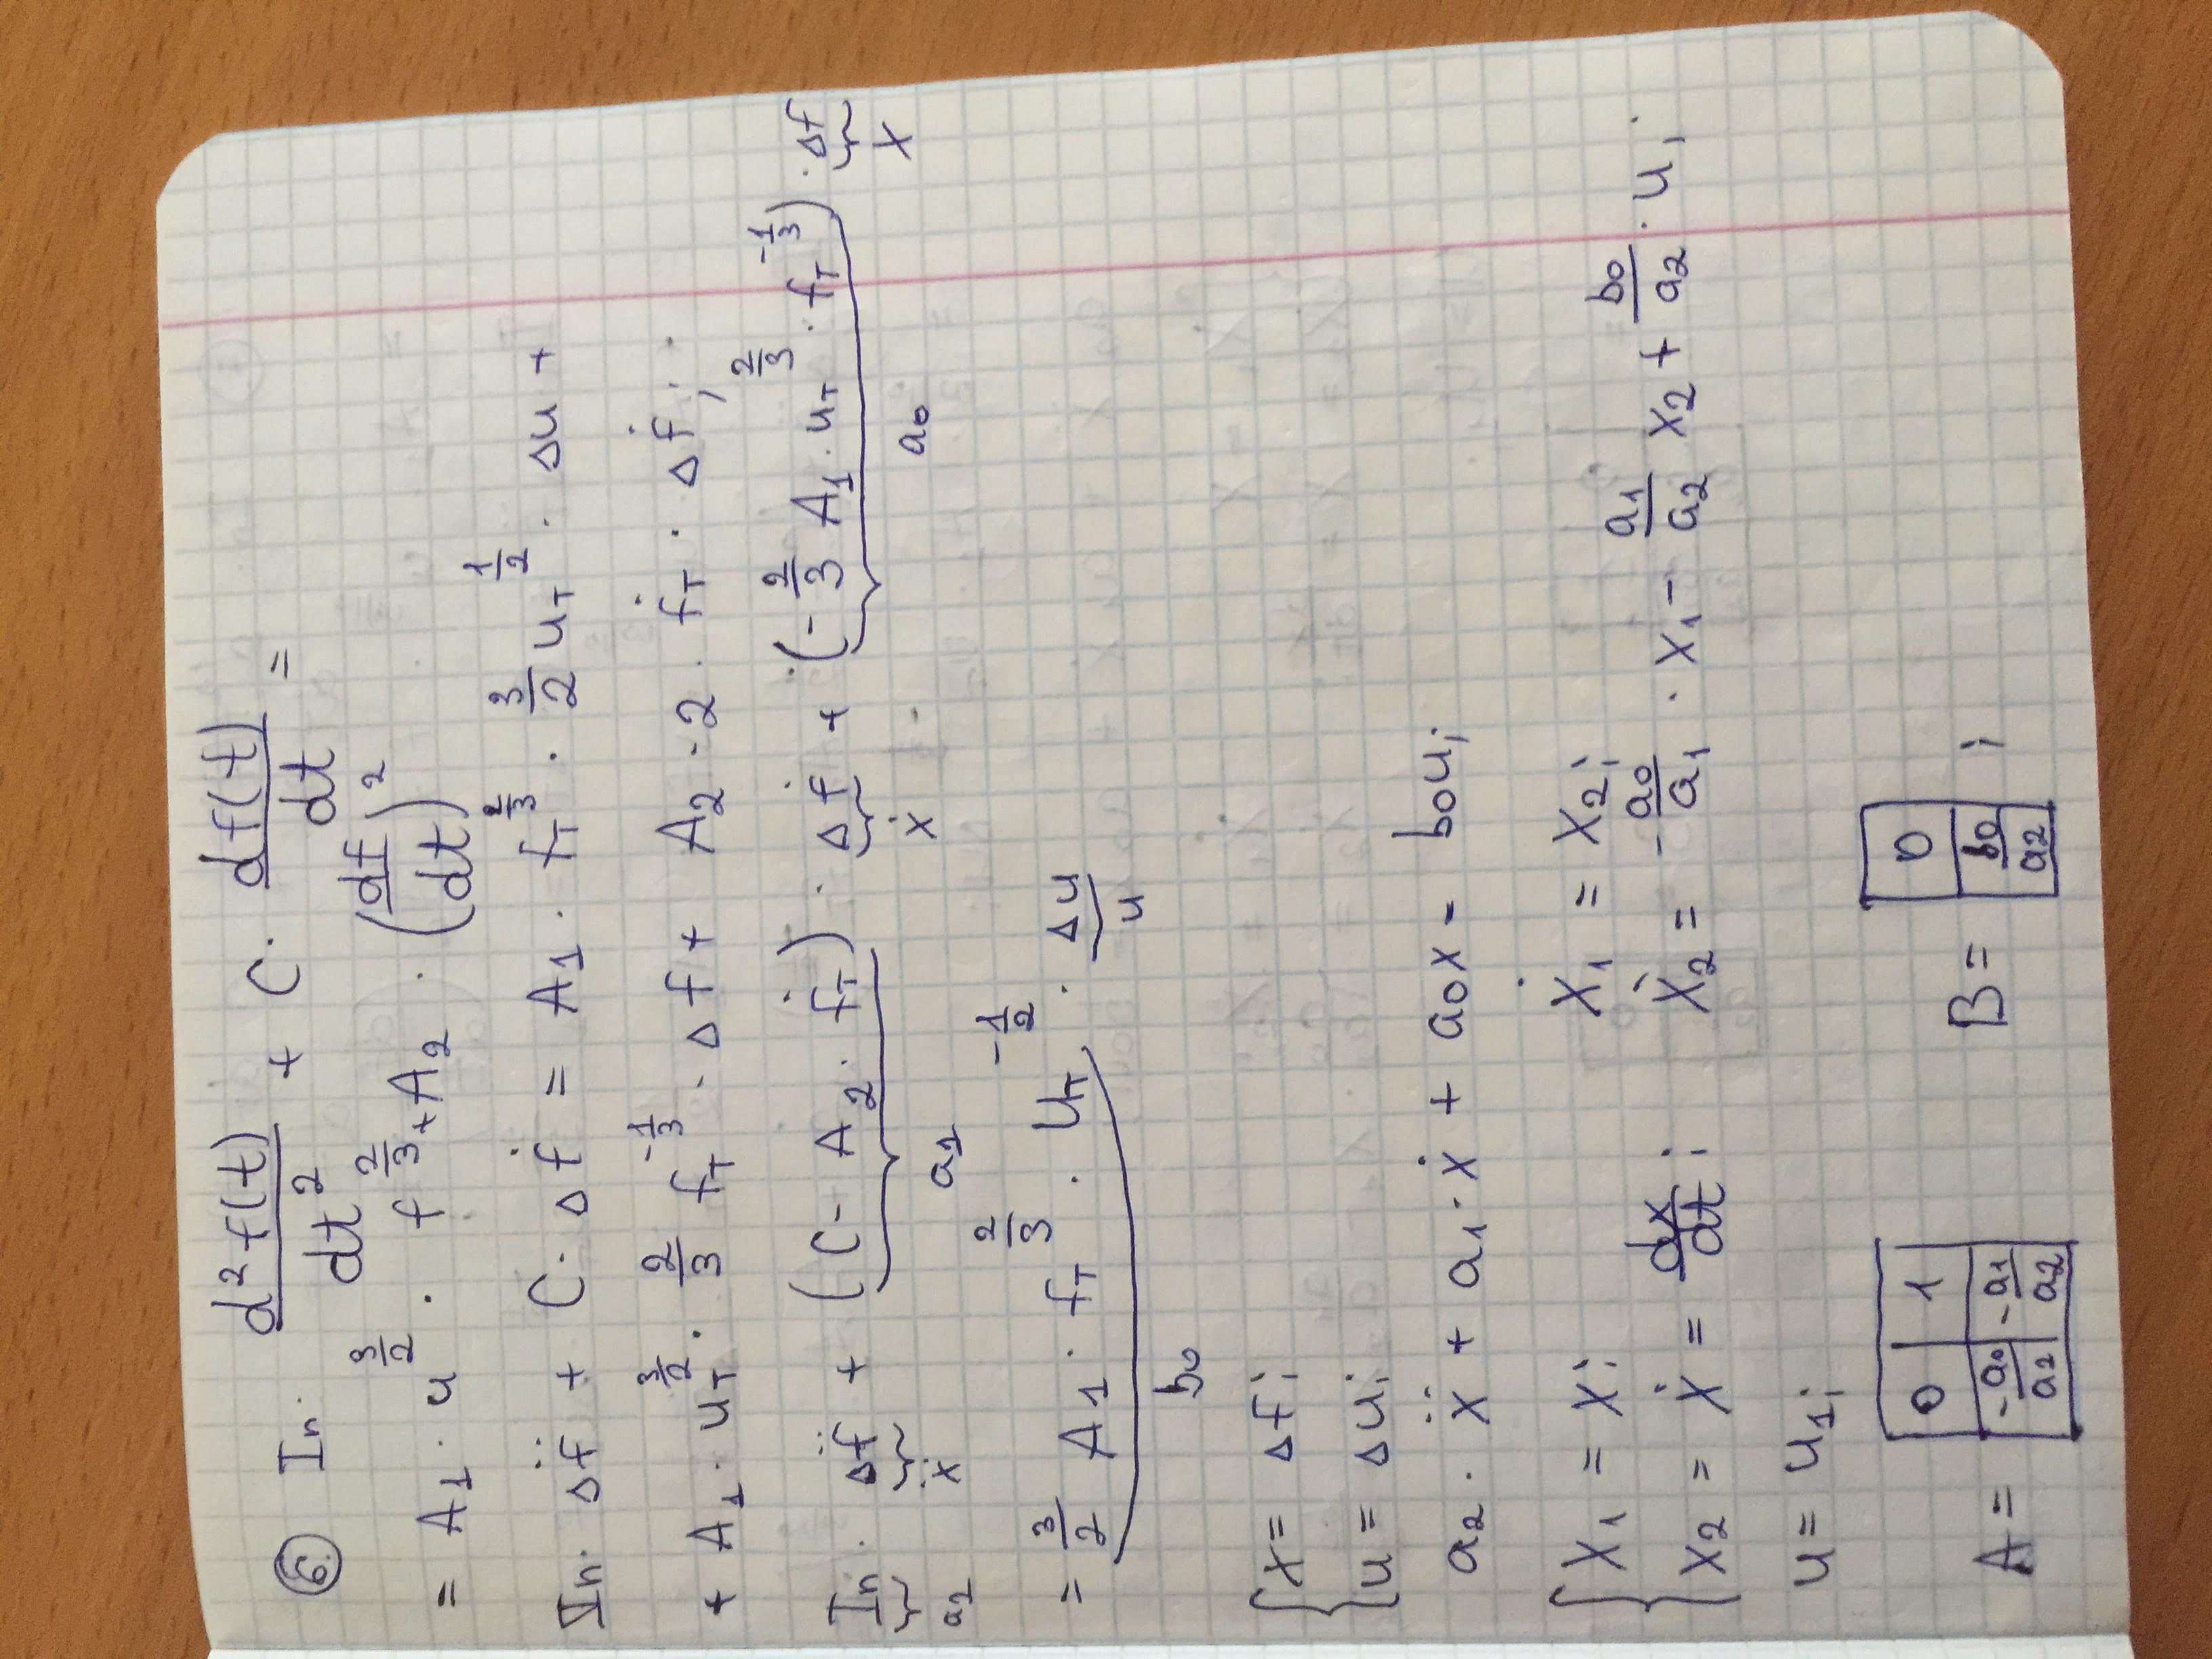 ⑥ In · d²f(t)/dt² + C · df(t)/dt =
= A₁ · u^(3/2) · f^(2/3) + A₂ · (df/dt)²
In · Δf̈ + C · Δḟ = A₁ · f_T^(2/3) · 3/2 u_T^(1/2) · Δu +
+ A₁ · u_T^(3/2) · 2/3 f_T^(-1/3) · Δf + A₂ · 2 · ḟ_T · Δḟ;
In · Δf̈ + (C - A₂ · ḟ_T) · Δḟ + (-2/3 A₁ · u_T^(2/3) · f_T^(-1/3)) · Δf
a₂ ẍ a₁ ẋ a₀ x
= 3/2 A₁ · f_T^(2/3) · u_T^(-1/2) · Δu
b₀ u
{ x = Δf;
u = Δu;
a₂ · ẍ + a₁ · ẋ + a₀x = b₀u;
{ x₁ = x; ẋ₁ = x₂;
x₂ = ẋ = dx/dt; ẋ₂ = -a₀/a₁ · x₁ - a₁/a₂ x₂ + b₀/a₂ · u;
u = u₁;
A = | 0 | 1 | B = | 0 | ;
| -a₀/a₂ | -a₁/a₂ | | b₀/a₂ |